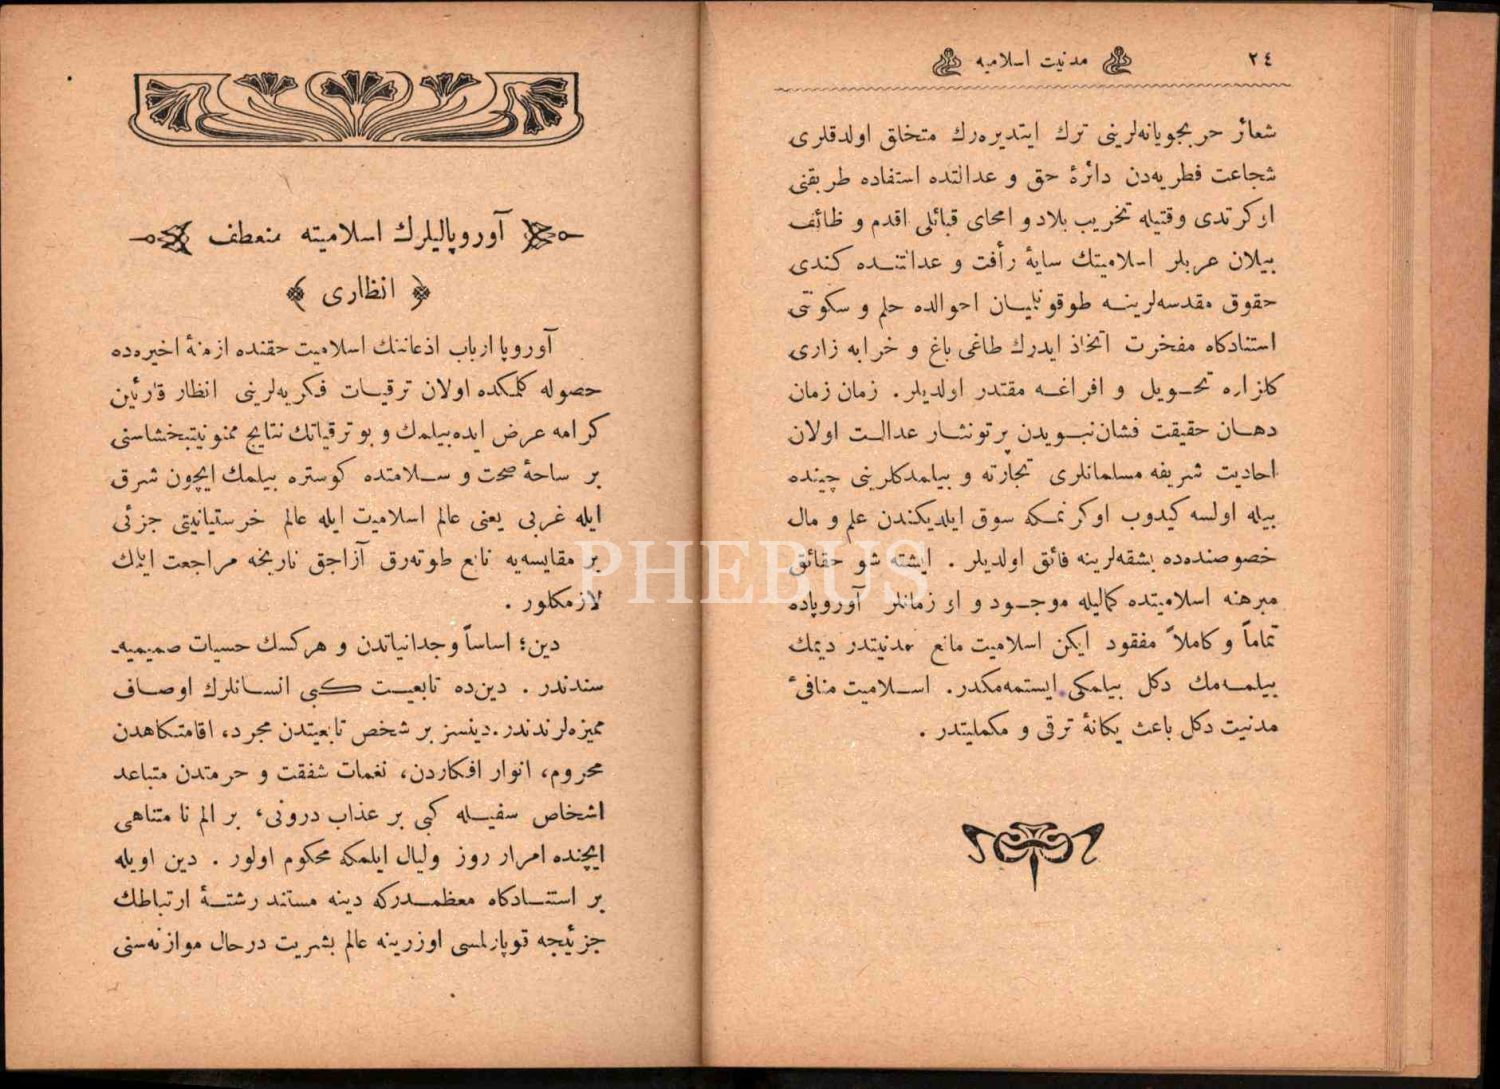 ٢٤
مدنيت اسلاميه
شعائر حربجويانه‌لرينى ترك ايتديره‌رك متخلق اولدقلرى
شجاعت فطريه‌دن دائرۀ حق و عدالتده استفاده طريقنى
اوكرتدى وقتيله تخريب بلاد و امحاى قبائلى اقدم وظائف
بيلان عربلر اسلاميتك سايۀ رأفت و عدالتنده كندى
حقوق مقدسه‌لرينه طوقونلميان احوالده حلم و سكوتى
استنادكاه مفخرت اتخاذ ايدرك طاغى باغ و خرابه زارى
كلزاره تحويل و افراغه مقتدر اولديلر. زمان زمان
دهان حقيقت فشان نبويدن پرتونثار عدالت اولان
احاديث شريفه مسلمانلرى تجارته و بيلمدكلرينى چينده
بيله اولسه كيدوب اوكرنمكه سوق ايلديكندن علم و مال
خصوصنده‌ده بشقه‌لرينه فائق اولديلر. ايشته شو حقائق
مبرهنه اسلاميتده كماليله موجود و او زمانلر آوروپاده
تماماً و كاملاً مفقود ايكن اسلاميت مانع مدنيتدر ديمك
بيلمه‌مك دكل بيلمكى ايستمه‌مكدر. اسلاميت منافئ
مدنيت دكل باعث يكانۀ ترقى و مكمليتدر.
آوروپاليلرك اسلاميته منعطف
انظارى
آوروپا ارباب اذعاننك اسلاميت حقنده ازمنۀ اخيره‌ده
حصوله كلمكده اولان ترقيات فكريه‌لرينى انظار قارئين
كرامه عرض ايده‌بيلمك و بو ترقياتك نتايج ممنونيتبخشاسنى
بر ساحۀ صحت و سلامتده كوستره بيلمك ايچون شرق
ايله غربى يعنى عالم اسلاميت ايله عالم خرستيانيتى جزئى
بر مقايسه‌يه تابع طوته‌رق آزاجق تاريخه مراجعت ايتمك
لازمكلور.
دين؛ اساساً وجدانياتدن و هركسك حسيات صميميه‌-
سندندر. دين‌ده تابعيت كبى انسانلرك اوصاف
مميزه‌لرندندر. دينسز بر شخص تابعيتدن مجرد، اقامتكاهدن
محروم، انوار افكاردن، نغمات شفقت و حرمتدن متباعد
اشخاص سفيله كبى بر عذاب درونى، بر الم نا متناهى
ايچنده امرار روز وليال ايلمكه محكوم اولور. دين اويله
بر استنادكاه معظمدركه دينه مستند رشتۀ ارتباطك
جزئيجه قوپارلمسى اوزرينه عالم بشريت درحال موازنه‌سنى
PHEBUS